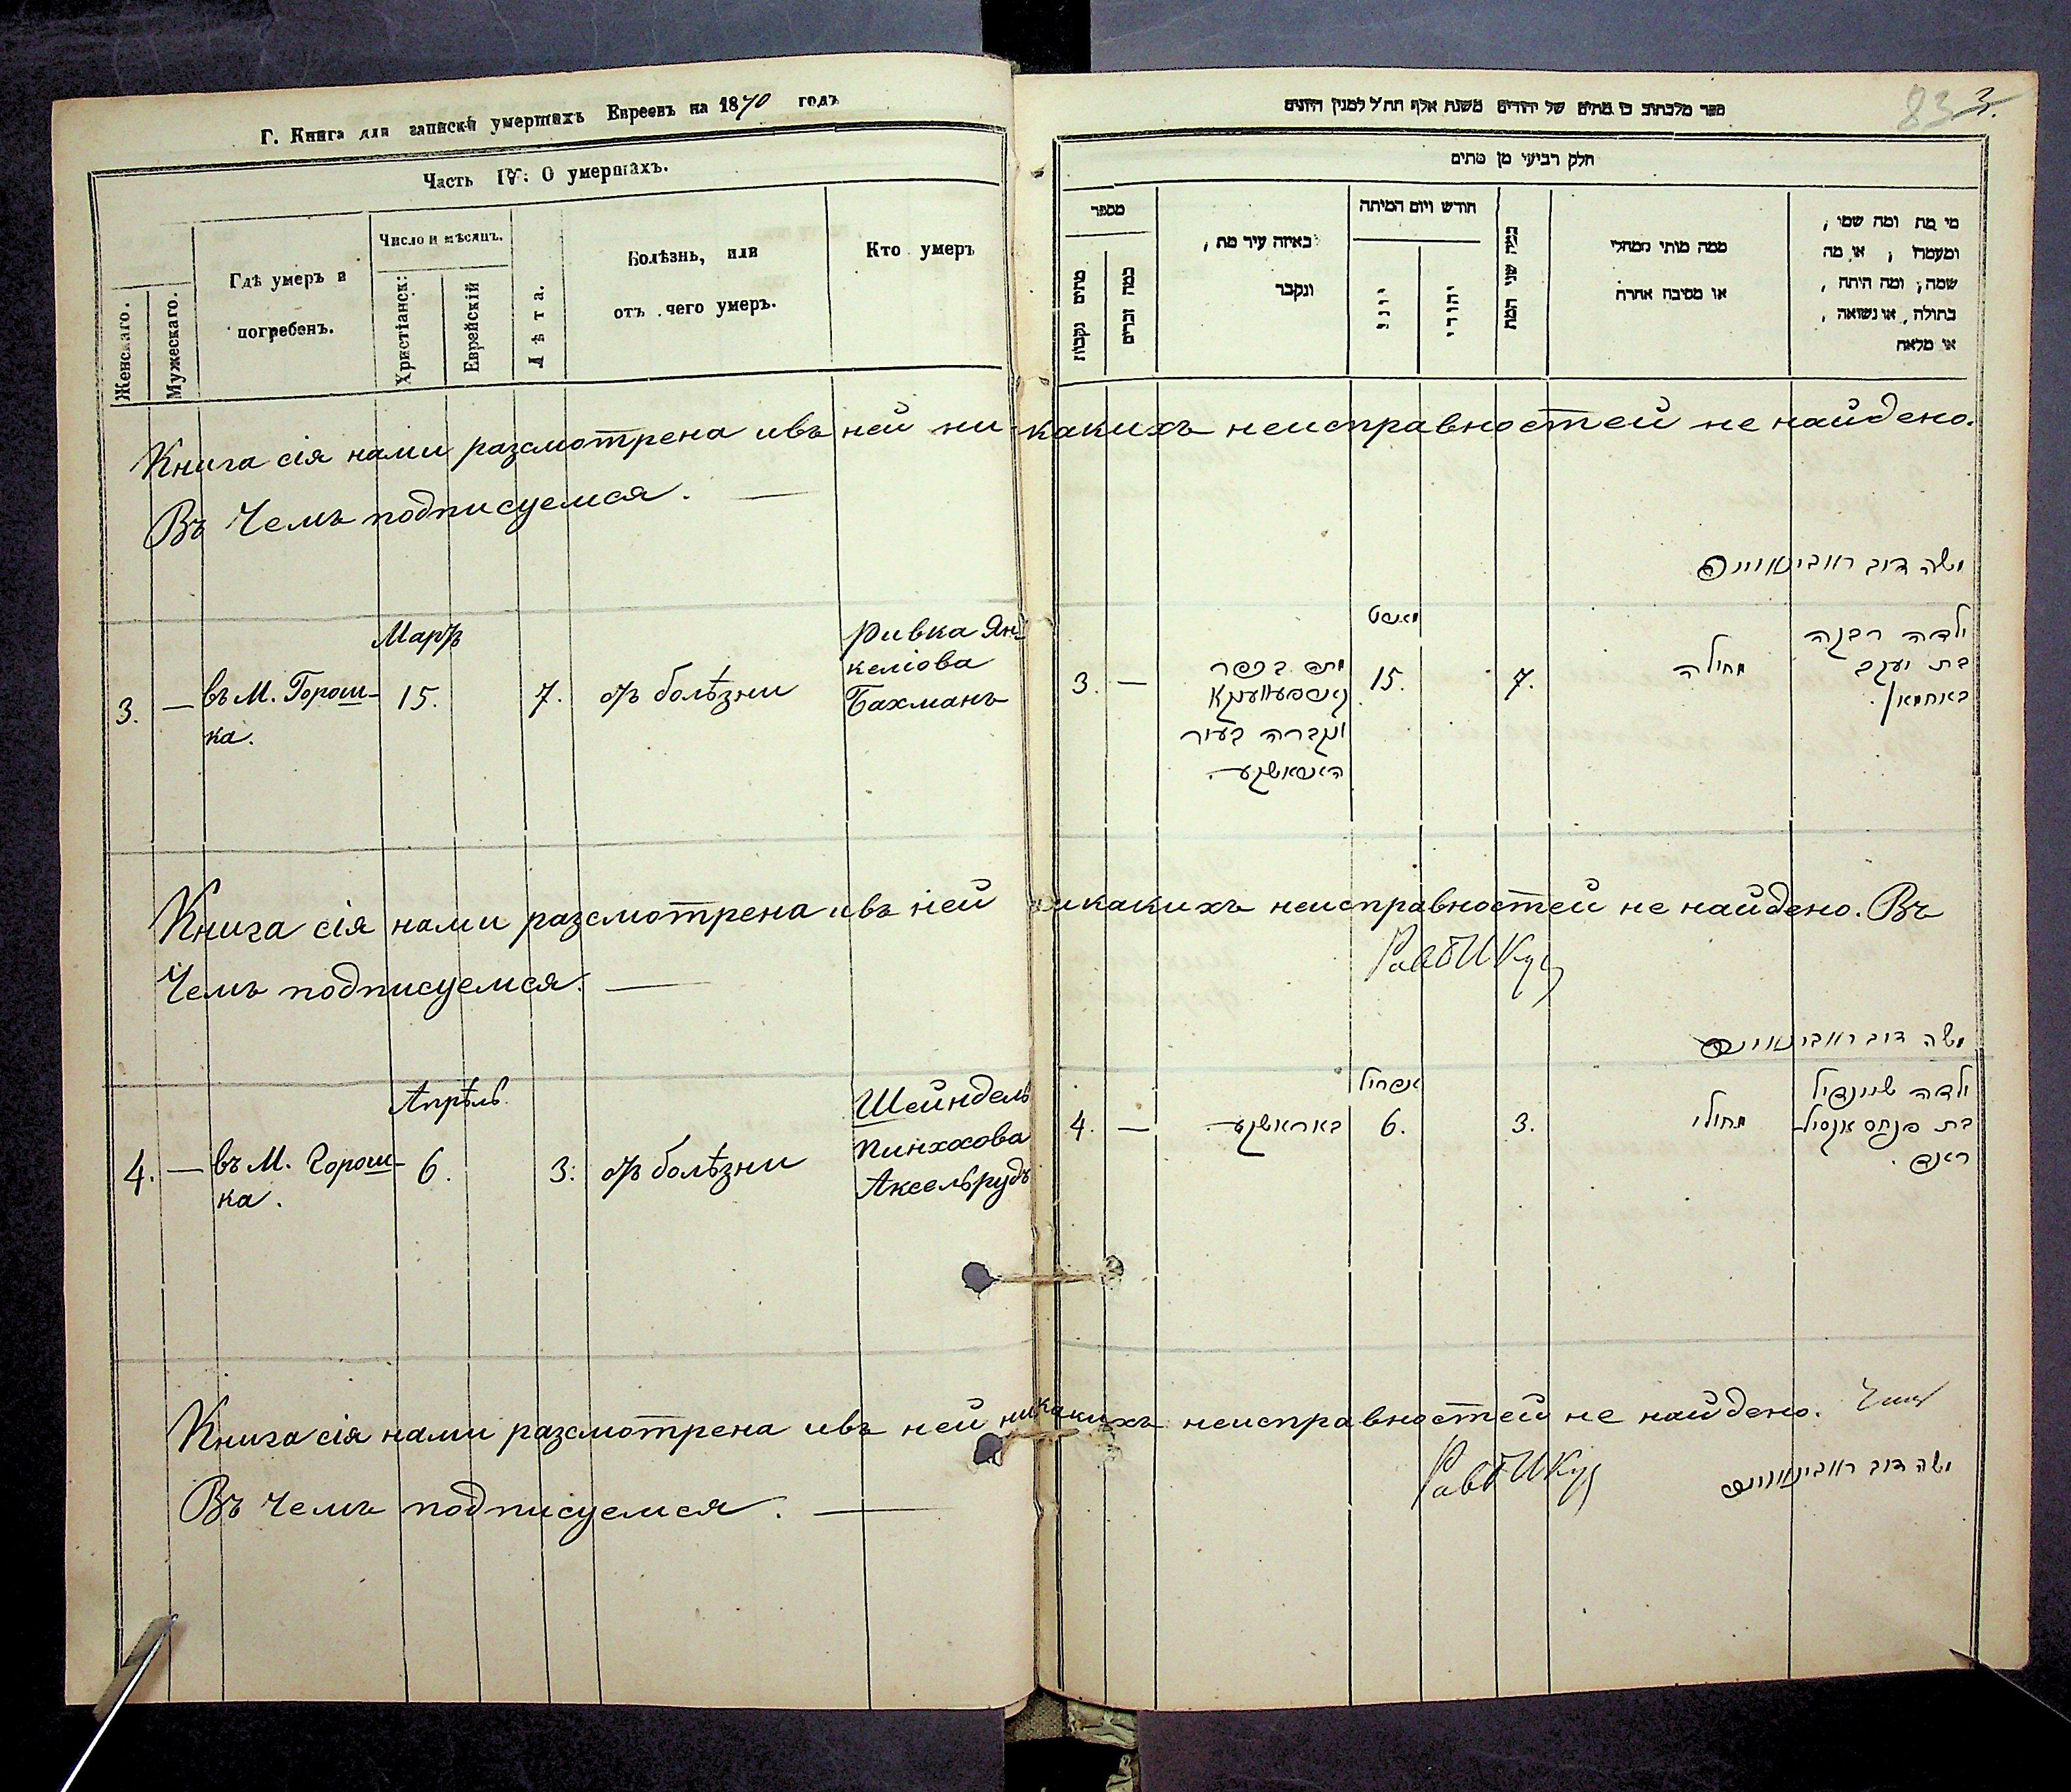 Г. Книга для записки умершихъ Евреевъ на 1870 годъ
Часть IV: О умершихъ.
Женскаго.
Мужескаго.
Гдѣ умеръ и
погребенъ.
Число и мѣсяцъ.
Христіанск:
Еврейскій
Лѣта.
Болѣзнь, или
отъ чего умеръ.
Кто умеръ
Книга сія нами разсмотрена ивъ ней ни
Въ Чемъ подписуемся.
Мартъ
3. — въ М. Горош-
ка.
15.
7.
отъ болѣзни
Ривка Ян-
келіова
Бахманъ
Книга сія нами разсмотрена ивъ ней
Чемъ подписуемся.
Апрѣль
4. — въ М. Горош-
ка.
6.
3.
отъ болѣзни
Шейндель
Пинхасова
Аксельрудъ
Книга сія нами разсмотрена ивъ ней
Въ Чемъ подписуемся.
83 3.
של יהודים משנת אלף תת״ל למנין היונים
חלק רביעי מן מתים
מי מת ומה שמו,
ומעמדו, או מה
שמה, ומה היתה,
בתולה, או נשואה,
או מלאה
ממה מותי ממחלי
או מסיבה אחרת
כמה שני המת
חודש ויום המיתה
יהודי
יוני
באיזה עיר מת,
ונקבר
מספר
כמה זכרים
מתים נקבות
какихъ неисправностей не найдено.
משה דוב ראבינאוויץ
מארט
ילדה רבקה
בת יעקב
באחמאן.
מחולה
7.
15.
מתה בכפר
ונקברה בעיר
3. —
никакихъ неисправностей не найдено. Въ
משה דוב ראבינאוויץ
אפריל
ילדה שיינדיל
בת פנחס אקסיל-
ראד.
מחולי
3.
6.
4. —
никакихъ неисправностей не найдено.
משה דוב ראבינאוויץ